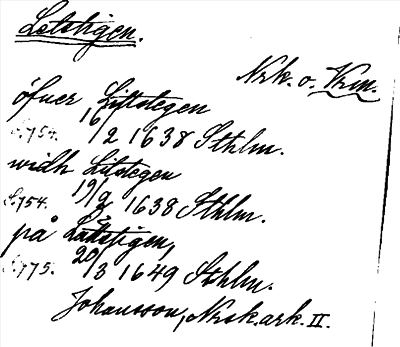 Letstigen.
Nrk. o. Vrm.
öfuer Litstegen
S.754. 16/2 1638 Sthlm.
widh Litstegen
S.754. 19/2 1638 Sthlm.
på Låtstigen,
S.775. 20/3 1649 Sthlm.
Johansson, Nrsk. ark. II.